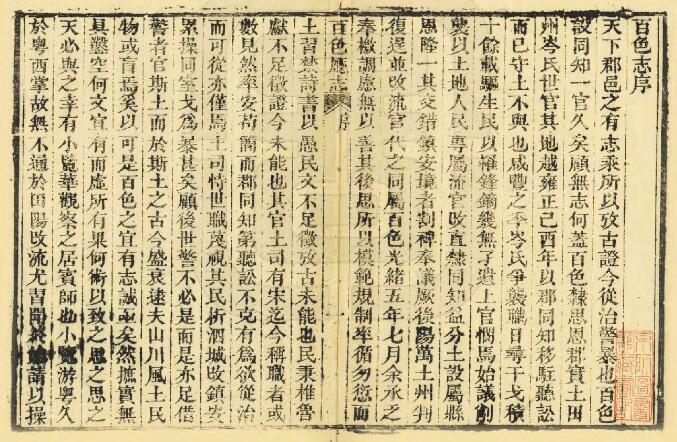 百色志序
天下郡邑之有志乘所以攷古證今從治警暴也百色
設同知一官久矣顧無志何蓋百色隸思恩郡實土田
州岑氏世官其地越雍正己酉年以郡同知移駐聽訟
而已守土不與也咸豐之季岑氏爭襲職日尋干戈積
十餘載驅生民以罹鋒鏑幾無孑遺上官憫焉始議劃
襲以土地人民專屬流官改直隸同知益分土設屬縣
恩隆一其交錯鎮安境者割裨奉議厥後陽萬土州判
復並改流官代之同屬百色光緒五年七月余承乏
奉檄調處無以善其後思所以模範規制率循勿愆而
百色廳志 序
土習焚詩書以愚民文不足徵攷古未能也民秉椎魯
獻不足徵證今未能也其官土司有宋迄今稱職者或
數見然率安苟簡而郡同知第聽訟不克有為欲從治
而可從亦僅焉土司恃世職視其民析酒城收鎮安
累操同室戈為暴甚矣顧後世警不必是而是亦足借
警者官斯土而於斯土之古今盛衰逮夫山川風土民
物或盲焉奚以可是百色之宜有志誠亟矣然摭實無
具鑿空何文宜有而虛所有果何術以致之思之思之
天必與之幸有小華觀察之居賓師也小游粤久
於粤西掌故無不通於田陽改流尤習聞終始請以操